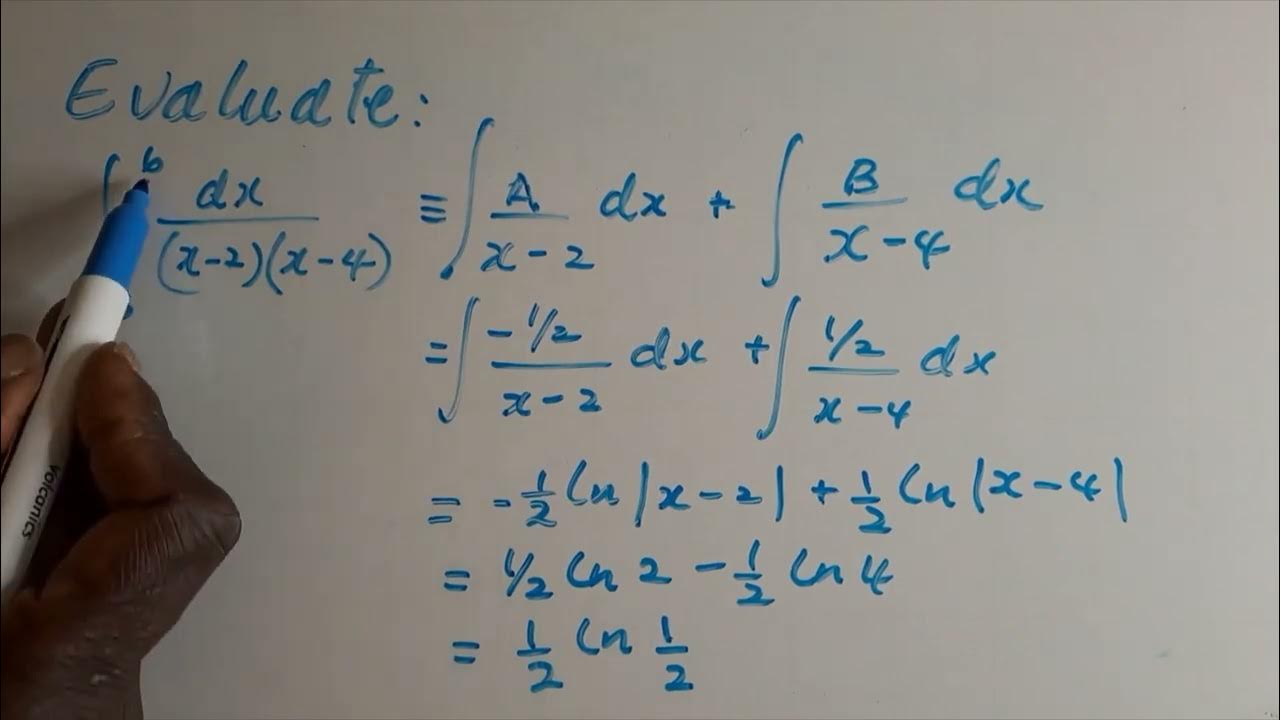 Evaluate:
∫ 6 dx / (x-2)(x-4) ≡ ∫ A / x-2 dx + ∫ B / x-4 dx
= ∫ -1/2 / x-2 dx + ∫ 1/2 / x-4 dx
= -1/2 ln |x-2| + 1/2 ln |x-4|
= 1/2 ln 2 - 1/2 ln 4
= 1/2 ln 1/2
volcanics